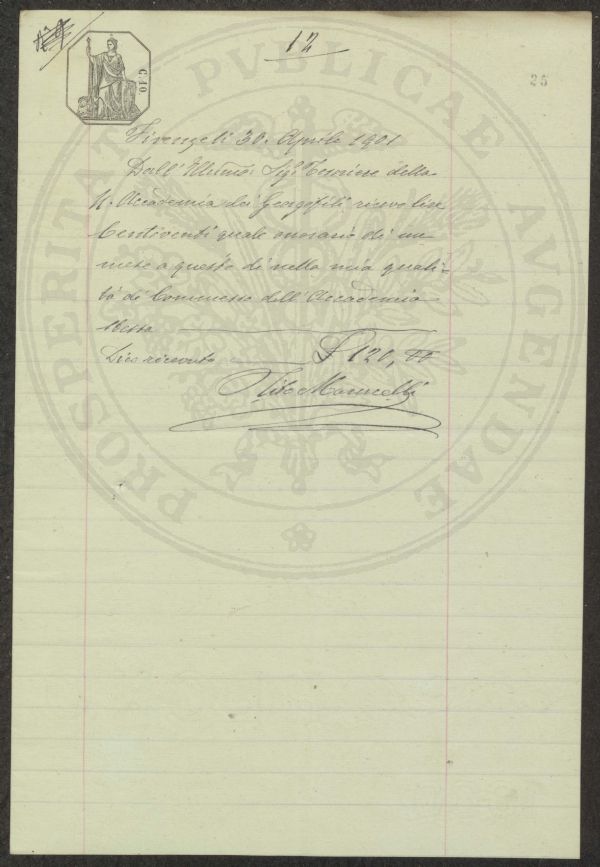 12
25
C. 10
PROSPERITATI PVBLICAE AVGENDAE
Firenze li 30. Aprile 1901
Dall' Illmo. Sigr. Cassiere della
R. Accademia dei Georgofili ricevo lire
Centoventi quale onorario di un
mese a questo dì nella mia quali-
tà di Commesso dell' Accademia
stessa
Dico ricevute £ 120,00